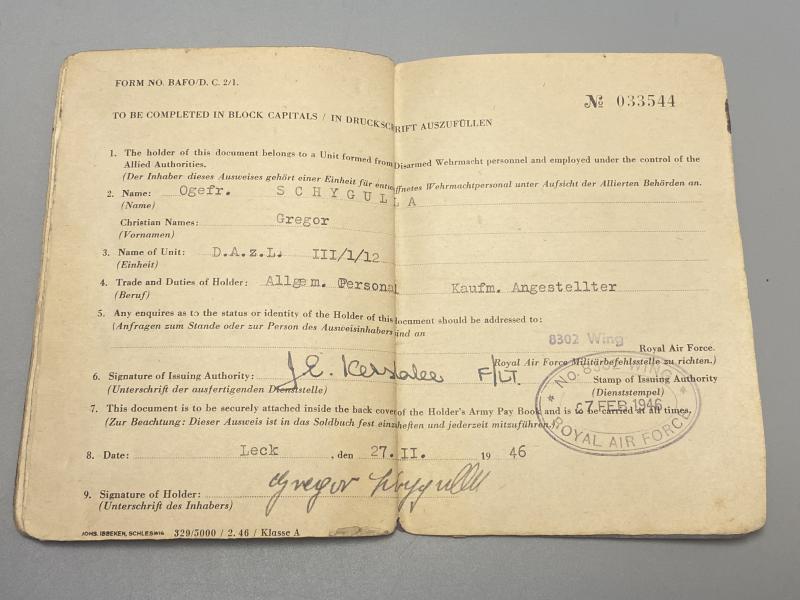 FORM NO. BAFO/D. C. 2/1.
№ 033544
TO BE COMPLETED IN BLOCK CAPITALS / IN DRUCKSCHRIFT AUSZUFÜLLEN
1. The holder of this document belongs to a Unit formed from Disarmed Wehrmacht personnel and employed under the control of the
Allied Authorities.
(Der Inhaber dieses Ausweises gehört einer Einheit für entwaffnetes Wehrmachtpersonal unter Aufsicht der Allierten Behörden an.
2. Name: Ogefr. SCHYGULLA
(Name)
Christian Names: Gregor
(Vornamen)
3. Name of Unit: D.A.z.L. III/1/12
(Einheit)
4. Trade and Duties of Holder: Allgem. Personal Kaufm. Angestellter
(Beruf)
5. Any enquires as to the status or identity of the Holder of this document should be addressed to:
(Anfragen zum Stande oder zur Person des Ausweisinhabers sind an
8302 Wing
Royal Air Force.
Royal Air Force Militärbefehlsstelle zu richten.)
6. Signature of Issuing Authority: F/LT. Stamp of Issuing Authority
(Unterschrift der ausfertigenden Dienststelle) (Dienststempel)
* NO. 8302 WING *
27 FEB 1946
ROYAL AIR FORCE
7. This document is to be securely attached inside the back cover of the Holder's Army Pay Book and is to be carried at all times.
(Zur Beachtung: Dieser Ausweis ist in das Soldbuch fest einzuheften und jederzeit mitzuführen.)
8. Date: Leck, den 27. II. 19 46
9. Signature of Holder: Gregor Schygulla
(Unterschrift des Inhabers)
JOHS. IBBEKEN, SCHLESWIG 329/5000 / 2. 46 / Klasse A